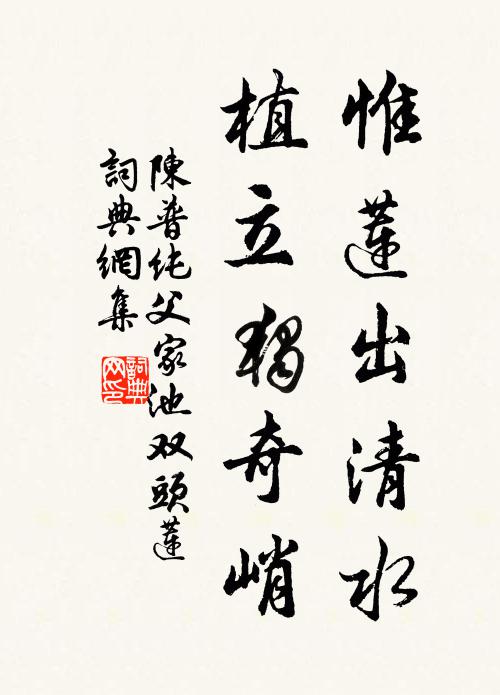 惟蓮出清水
植立獨奇峭
陳普純父家池双頭蓮
詞典網集
詞典
网印